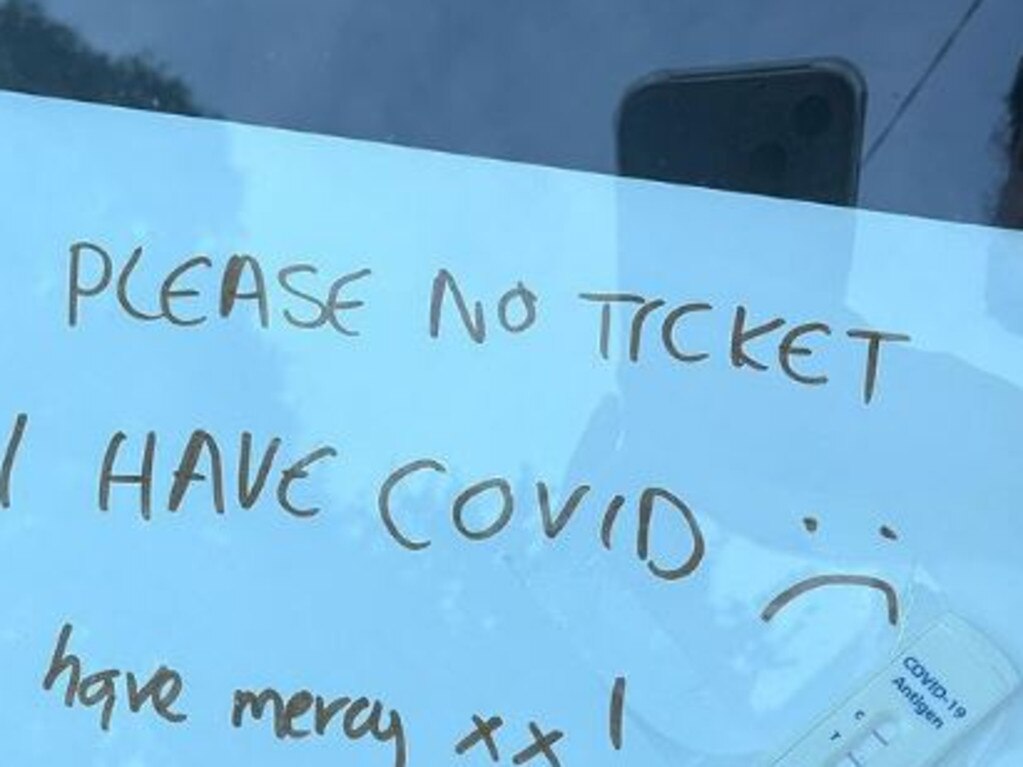 PLEASE NO TICKET
I HAVE COVID :(
have mercy xx !
COVID-19
Antigen
C
T